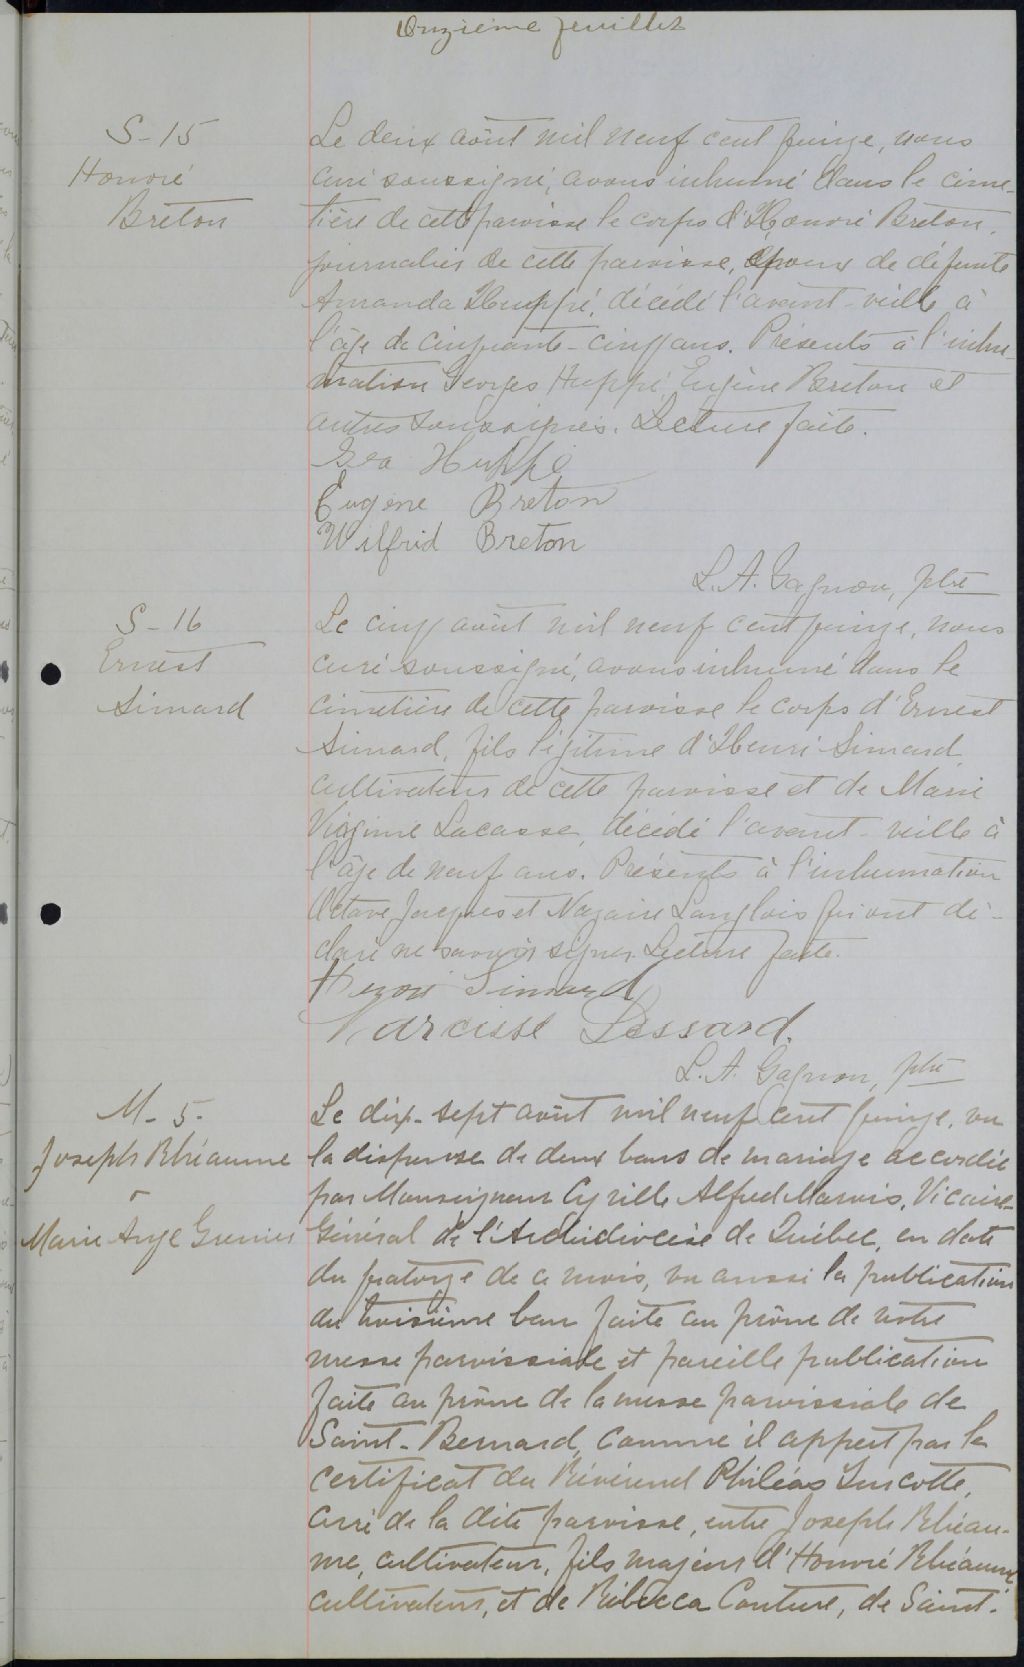 Onzième feuillet
S-15
Honoré
Breton
Le deux août mil neuf cent quinze, nous
curé soussigné, avons inhumé dans le cime-
tière de cette paroisse le corps d'Honoré Breton,
journalier de cette paroisse, époux de défunte
Amanda Huppé, décédé l'avant-veille à
l'âge de cinquante-cinq ans. Présents à l'inhu-
mation Georges Huppé, Eugène Breton et
autres soussignés. Lecture faite.
Geo Huppé
Eugène Breton
Wilfrid Breton
L. A. Gagnon, ptre
S-16
Ernest
Simard
Le cinq août mil neuf cent quinze, nous
curé soussigné, avons inhumé dans le
cimetière de cette paroisse le corps d'Ernest
Simard, fils légitime d'Henri Simard
cultivateur de cette paroisse et de Marie
Virginie Lacasse, décédé l'avant-veille à
l'âge de neuf ans. Présents à l'inhumation
Octave Jacques et Nazaire Langlois qui ont dé-
claré ne savoir signer. Lecture faite.
Henri Simard
Narcisse Lessard.
L. A. Gagnon, ptre
M. 5.
Joseph Rhéaume
Marie Ange Grenier
Le dix-sept août mil neuf cent quinze, vu
la dispense de deux bans de mariage accordée
par Monseigneur Cyrille Alfred Marois, Vicaire-
Général de l'Archidiocèse de Québec, en date
du quatorze de ce mois, vu aussi la publication
du troisième ban faite au prône de notre
messe paroissiale et pareille publication
faite au prône de la messe paroissiale de
Saint-Bernard, comme il appert par le
certificat du Révérend Philéas Turcotte,
curé de la dite paroisse, entre Joseph Rhéau-
me, cultivateur, fils majeur d'Honoré Rhéaume
cultivateur, et de Rébecca Couture, de Saint-